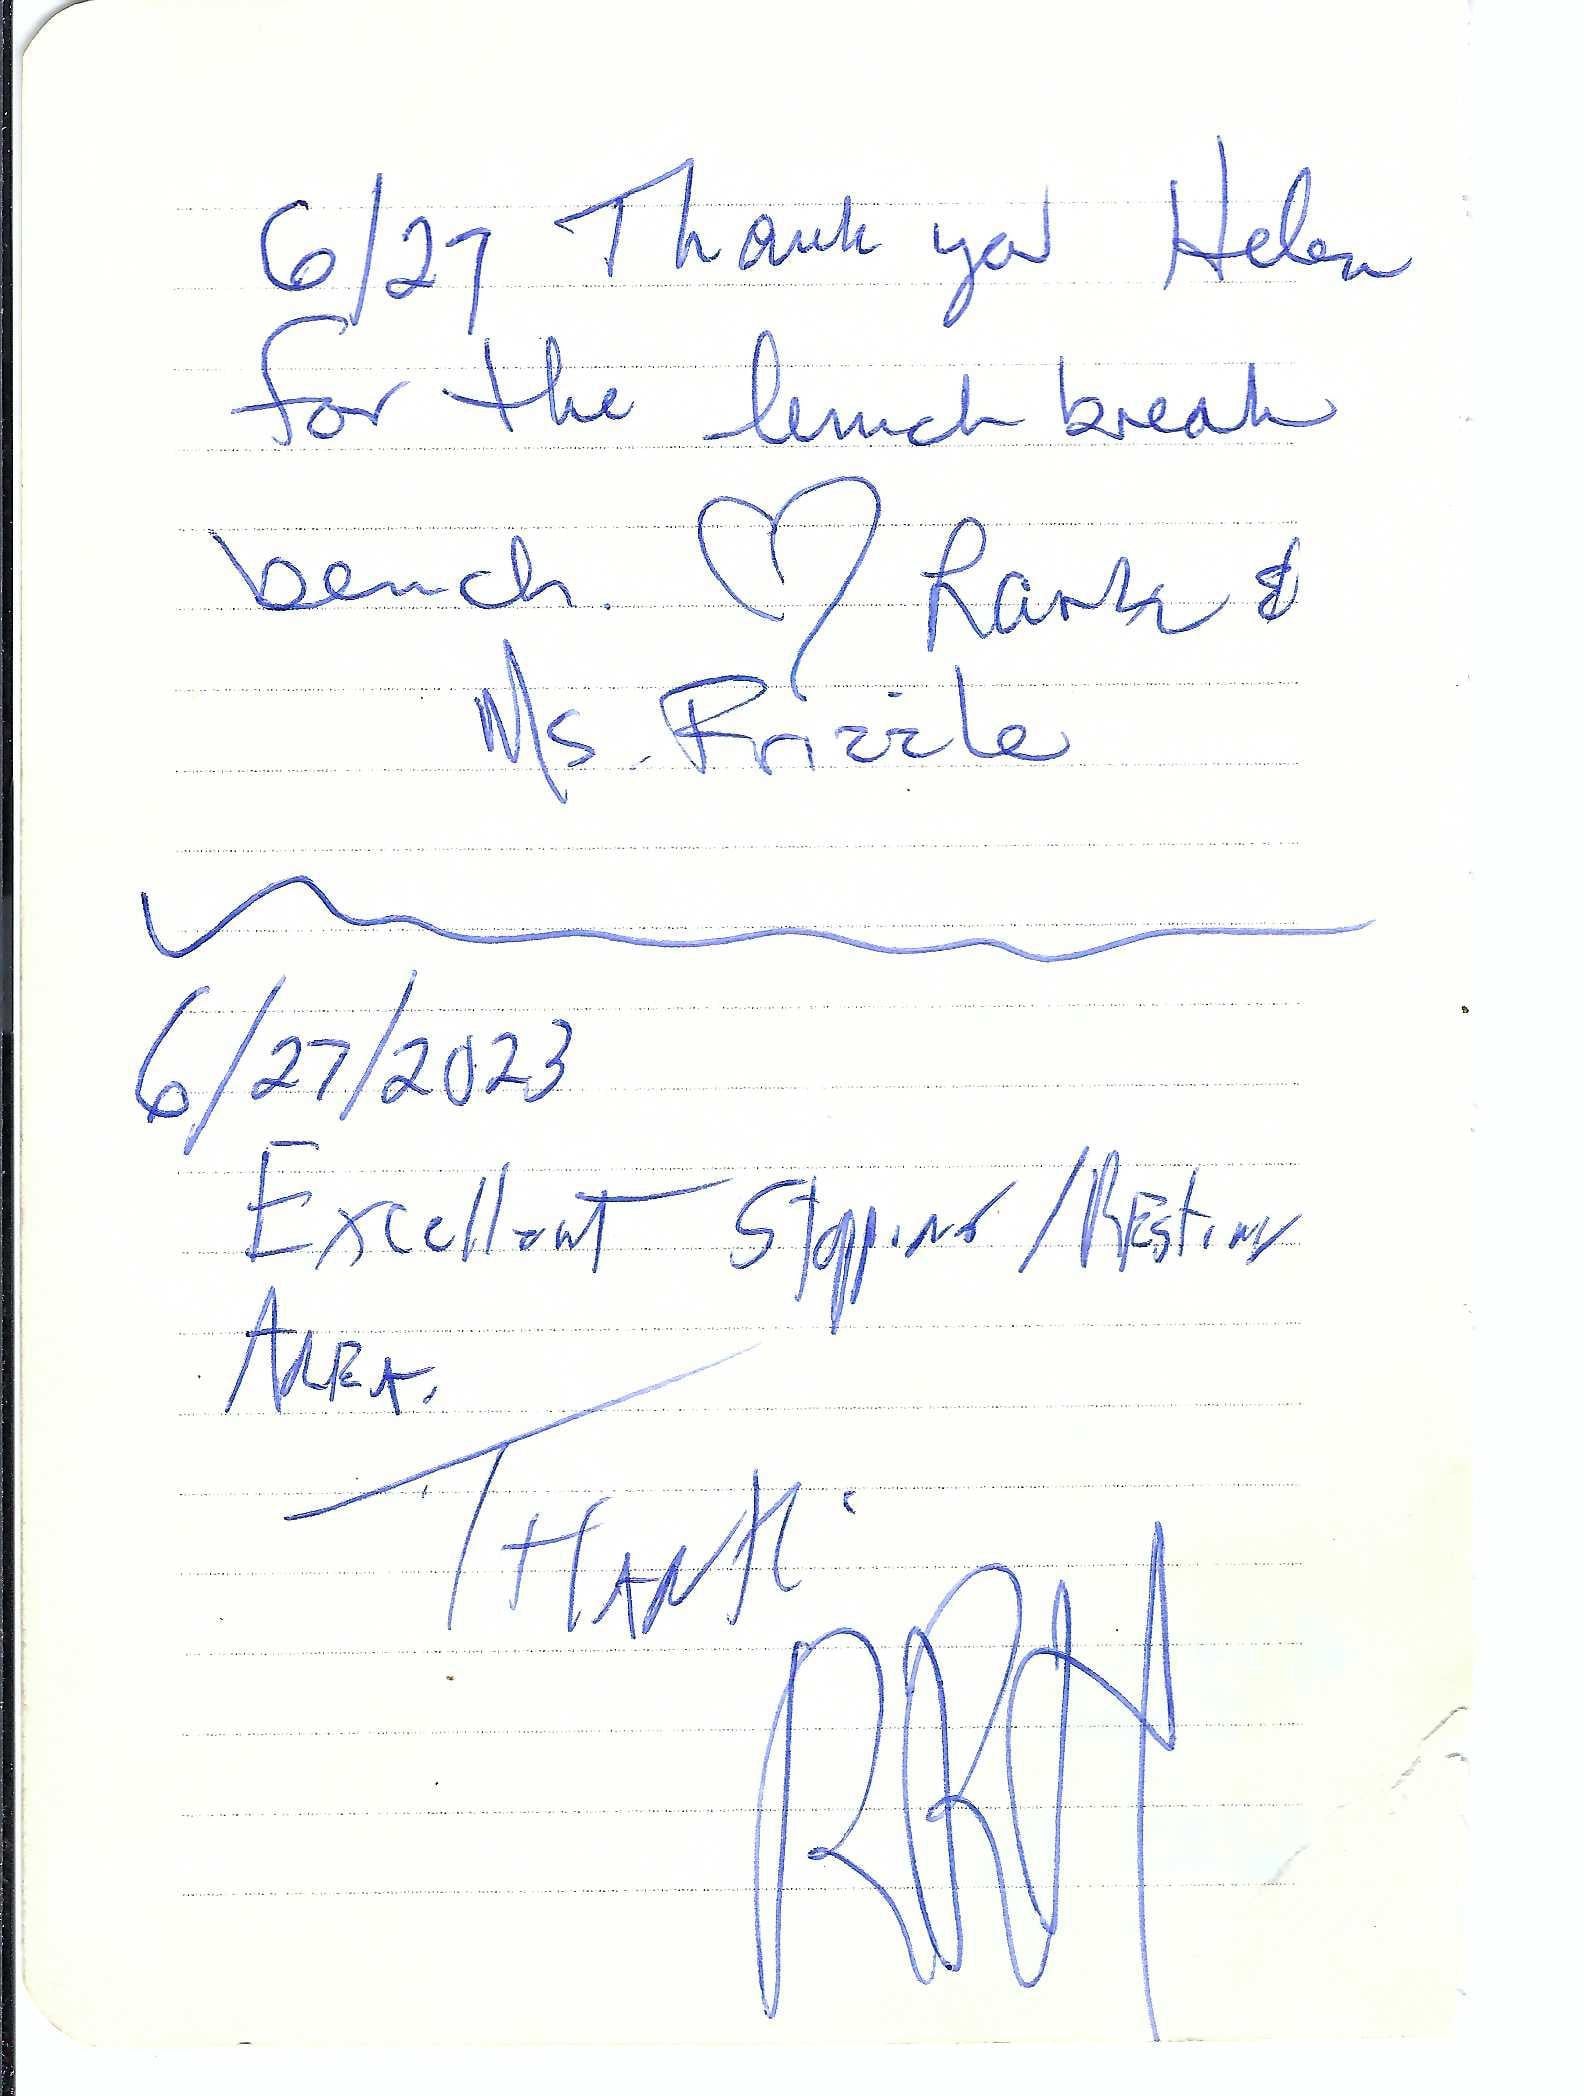 6/27 Thank you Helen
for the lunch break
bench. ♡ Lark &
Ms. Frizzle
6/27/2023
Excellent Stopping/Resting
AREA.
THANK